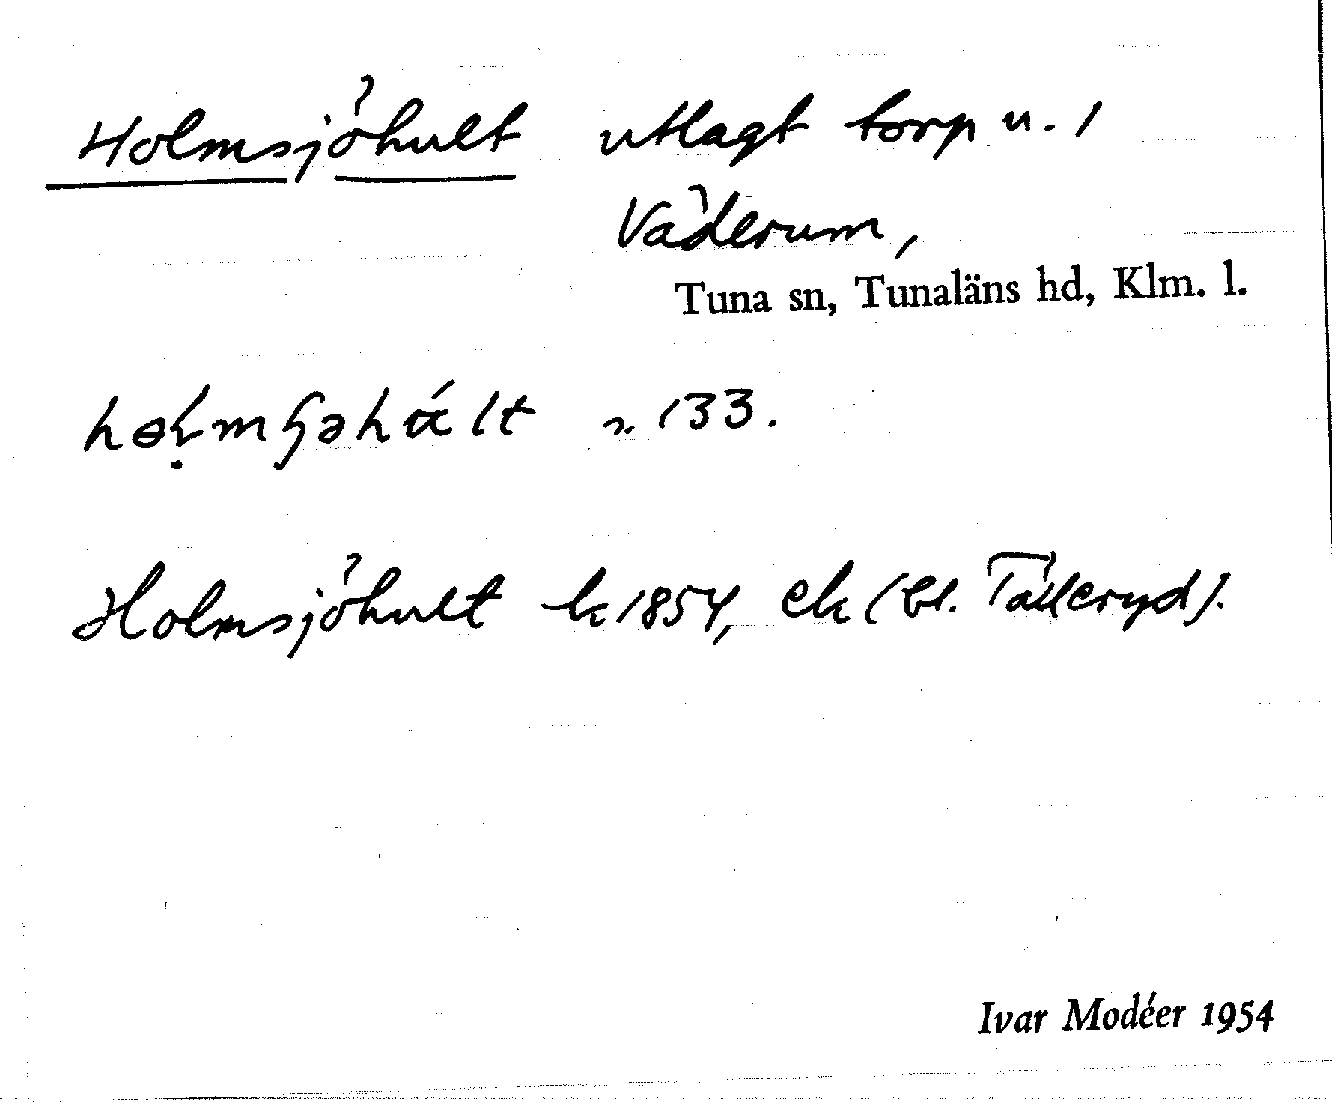 Holmsjöhult utlagt torp u. 1
Väderum,
Tuna sn, Tunaläns hd, Klm. l.
133.
Holmsjöhult k 1854, ek (bl. Tälleryd).
Ivar Modéer 1954